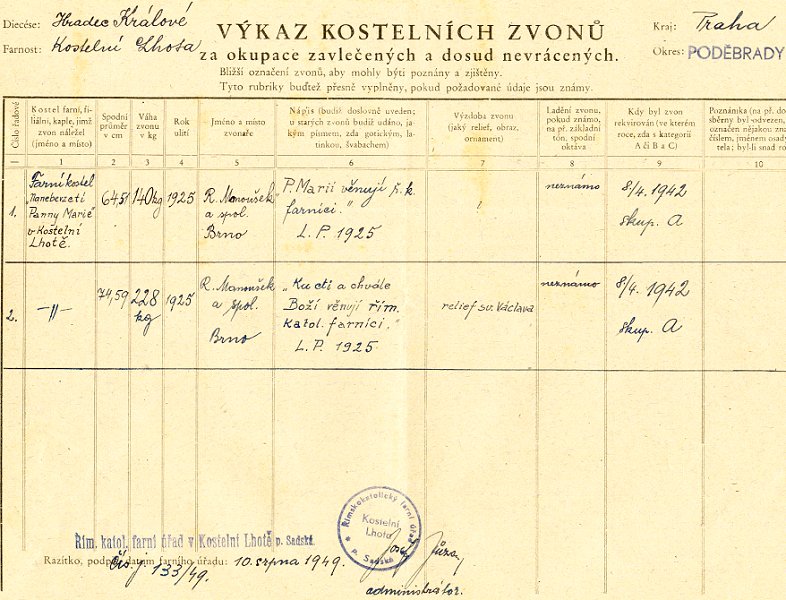 Diecése: Hradec Králové
Farnost: Kostelní Lhota
VÝKAZ KOSTELNÍCH ZVONŮ
za okupace zavlečených a dosud nevrácených.
Bližší označení zvonů, aby mohly býti poznány a zjištěny.
Tyto rubriky buďtež přesně vyplněny, pokud požadované údaje jsou známy.
Kraj: Praha
Okres: PODĚBRADY
Číslo řadové
Kostel farní, filiální, kaple, jimž zvon náležel (jméno a místo)
Spodní průměr v cm
Váha zvonu v kg
Rok ulití
Jméno a místo zvonaře
Nápis (budiž doslovně uveden; u starých zvonů budiž udáno, jakým písmem, zda gotickým, latinkou, švabachem)
Výzdoba zvonu (jaký relief, obraz, ornament)
Ladění zvonu, pokud známo, na př. základní tón, spodní oktáva
Kdy byl zvon rekvirován (ve kterém roce, zda s kategorií A či B a C)
Poznámka (na př. do
sběrny byl odvezen,
označen nějakou zna
číslem, jménem osad
tela; byl-li snad ro
— 1 2 3 4 5 6 7 8 9 10
1. Farní kostel
"Nanebevzetí
Panny Marie"
v Kostelní
Lhotě.
64,51 140 kg 1925
R. Manoušek
a spol.
Brno
P. Marii věnují ř. k.
farníci."
L. P. 1925
neznámo
8/4. 1942
skup. A
2. —〃—
74,59 228 kg 1925
R. Manoušek
a spol.
Brno
„Ku cti a chvále
Boží věnují řím.
katol. farníci."
L. P. 1925
relief sv. Václava
neznámo
8/4. 1942
skup. A
Řím. katol. farní úřad v Kostelní Lhotě p. Sadská.
Razítko, podpis, datum farního úřadu: 10. srpna 1949.
Čís. j. 133/49.
Římskokatolický farní úřad
Kostelní
Lhota
p. Sadská
Josef
administrátor.